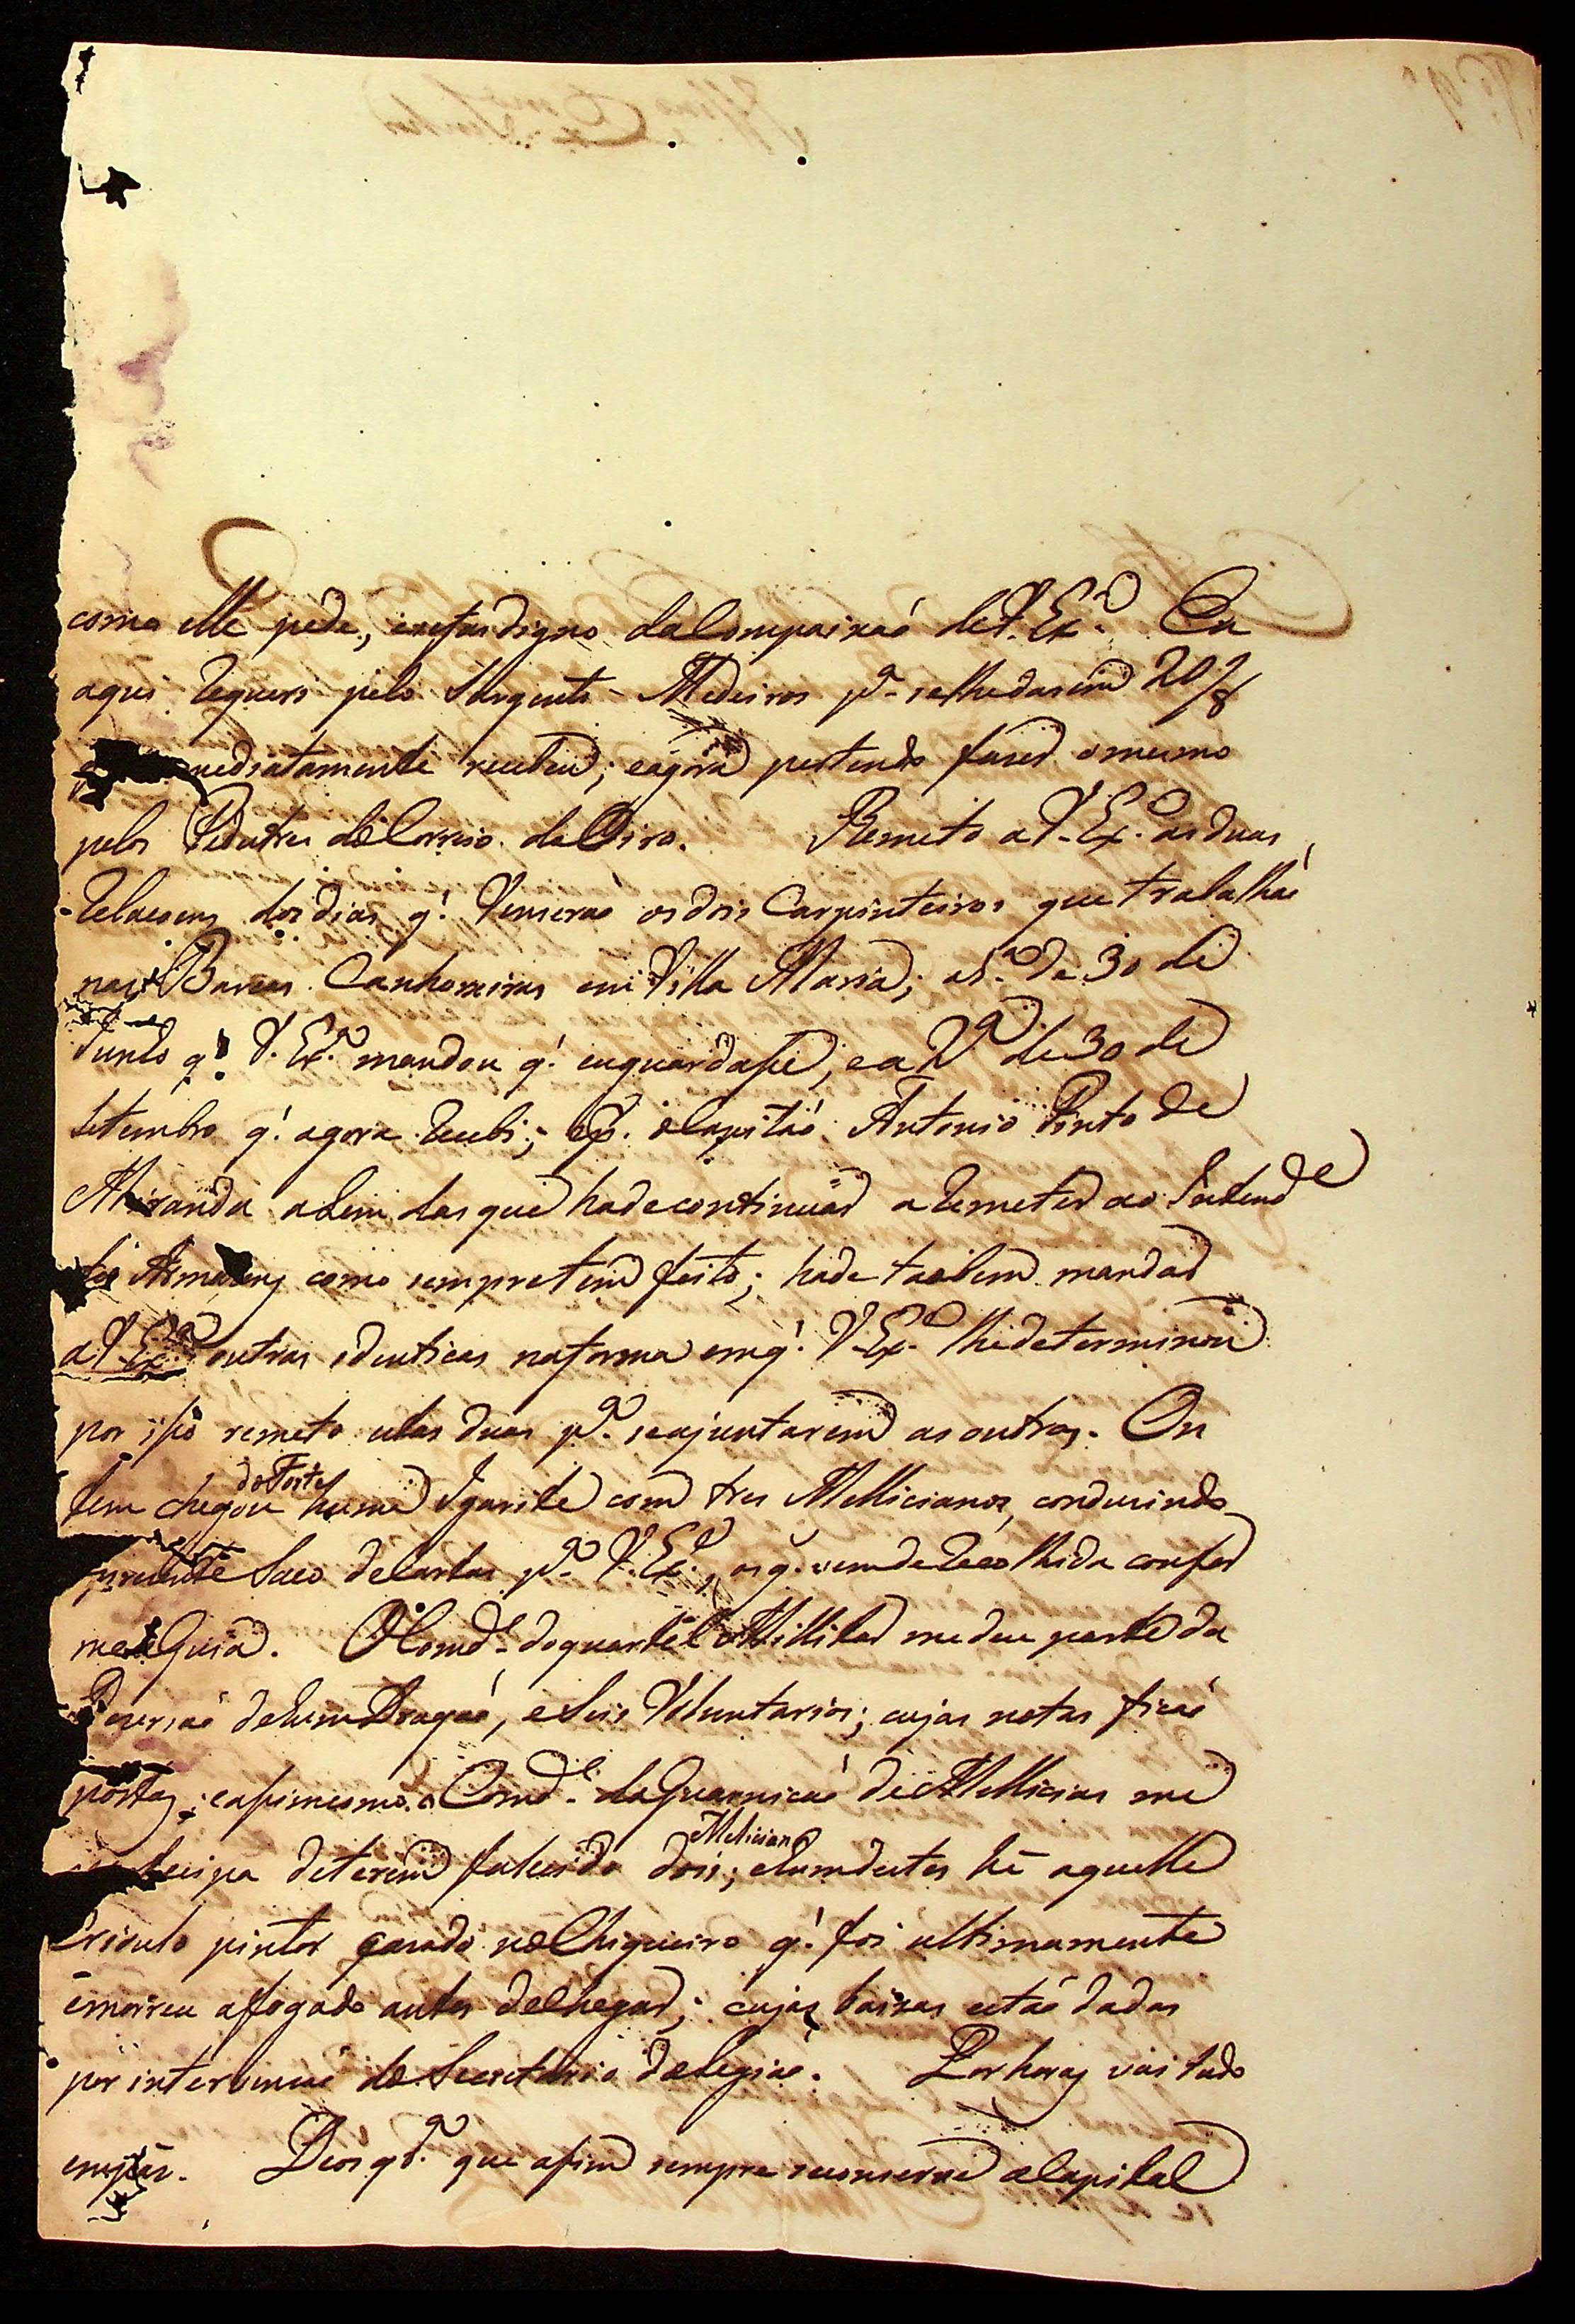 como elle pede, e está digno da Compaixaõ de V. Exª. Eu
aqui requeri pelo Sargento Medeiros pª. se lhe darem 20/8
mediatamente recebeu; e agora pertendo fazer o mesmo
pelos Pedestres do Correio da Oiro. Remeto a V. Exª. as duas
Relaçoens dos dias q'. Venceraõ os dois Carpinteiros que trabalhaõ
nas Barcas Canhoneiras em Villa Maria; a 1ª. de 30 de
Junho q'. V. Exª. mandou q'. eu guardaße, e a 2ª. de 30 de
Setembro q'. agora recebi; e o Capitaõ Antonio Pinto de
Miranda alem das que hade continuar a remeter ao Intende
dos Armazens como sempre tem feito; hade taobem mandar
a V. Exª. outras identicas na forma em q'. V. Exª. lhe determinou
por ißo remeto estas duas pª. se ajuntarem as outras. On
tem chegou do Forte huma Igarité com tres Mellicianos, conduzindo
prezente Saco de Cartas pª. V. Exª., os q. vem de Recolhida confor
me a Guia. O Comdᵉ. do quartel Millitar me deu parte da
Dezersaõ de hum Dragaõ, e Seis Voluntarios; cujas notas ficaõ
postas; e aßim mesmo o Comdᵉ. da Guarniçaõ de Mellicias me
cipa de terem falecido dois Melician; e hum destes hé aquelle
Crioulo pintor cazado no Chiqueiro q'. foi ultimamente
e morreu affogado antes de Chegar; cujas baixas estaõ dadas
por intervençaõ do Secretario da Legiaõ. Por horas vai tudo
em paz. Deos qrª. que aßim sempre se conserve a Capital